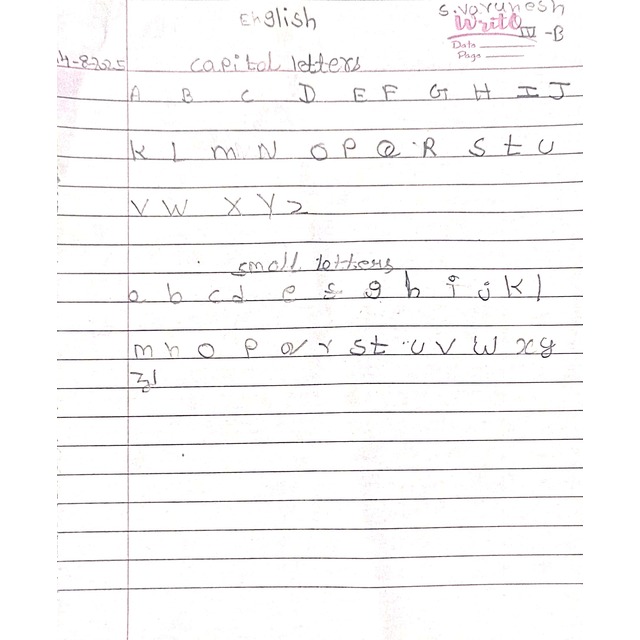 English
S. Varunesh
Write
IV -B
Date
Page
4-8-2025
Capital letters
A B C D E F G H I J
K L M N O P Q R S t U
V W X Y Z
small letters
a b c d e f g h i j k l
m n o p q r s t u v w x y
z